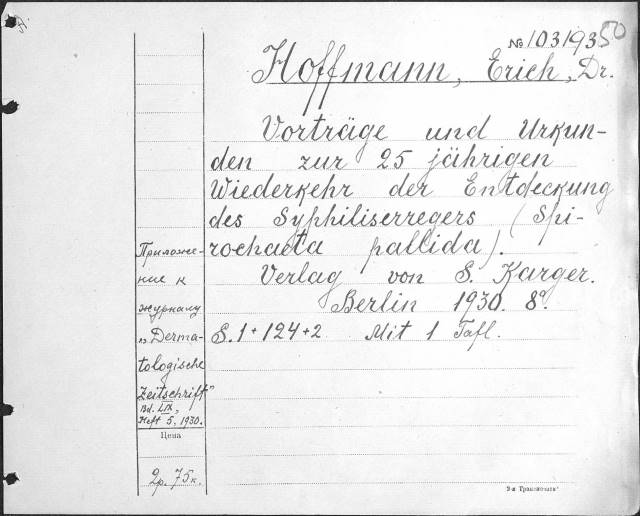 50
№ 1031935
Hoffmann, Erich, Dr.
Vorträge und Urkun-
den zur 25 jährigen
Wiederkehr der Entdeckung
des Syphiliserregers (Spi-
rochaeta pallida).
Verlag von S. Karger.
Berlin 1930. 8°.
S. 1+124+2 Mit 1 Tafl.
Приложе-
ние к
журналу
„Derma-
tologische
Zeitschrift"
Bd. LIX,
Heft 5, 1930.
Цена
2р. 75к.